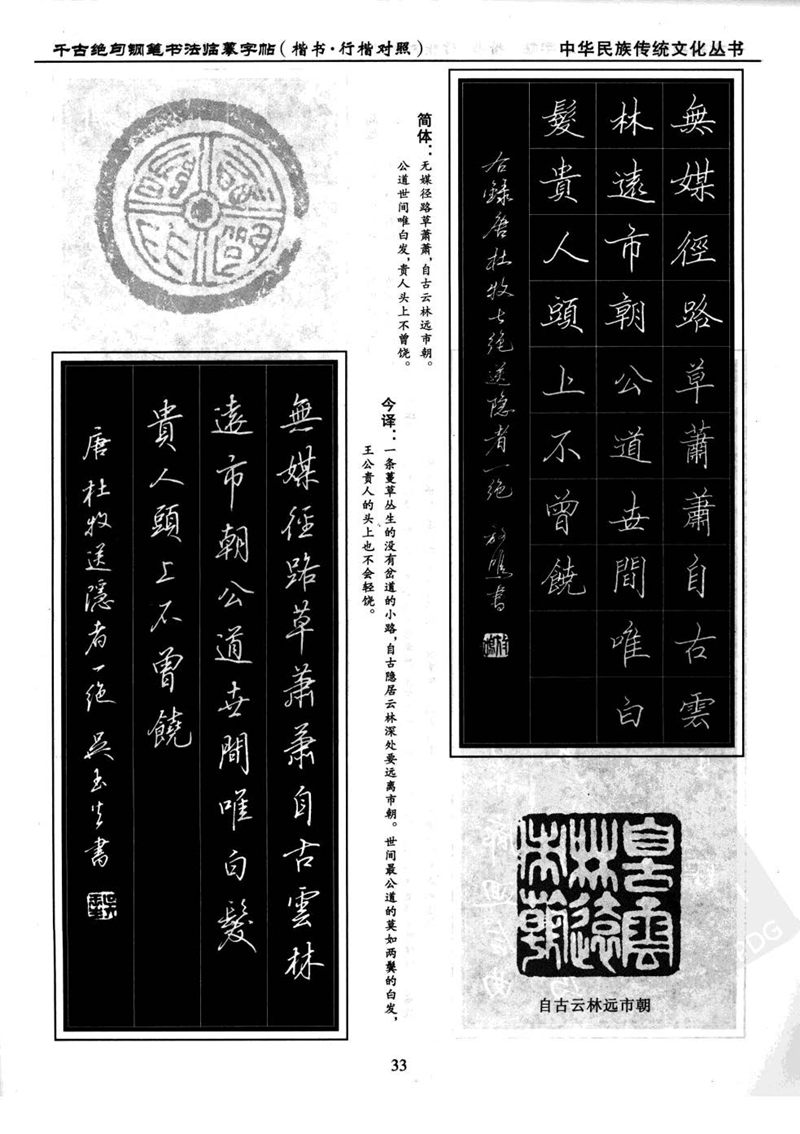 千古绝句钢笔书法临摹字帖(楷书·行楷对照)
中华民族传统文化丛书
無媒徑路草蕭蕭自古雲
林遠市朝公道世間唯白
髮貴人頭上不曾饒
右録唐杜牧七绝送隐者一绝
简体：无媒径路草萧萧，自古云林远市朝。
公道世间唯白发，贵人头上不曾饶。
今译：一条蔓草丛生的没有岔道的小路，自古隐居云林深处要远离市朝。世间最公道的莫如两鬓的白发，
王公贵人的头上也不会轻饶。
無媒徑路草蕭蕭自古雲林
遠市朝公道世間唯白髮
貴人頭上不曾饒
唐杜牧送隱者一绝 吴玉生書
自古雲
林遠
市朝
自古云林远市朝
33